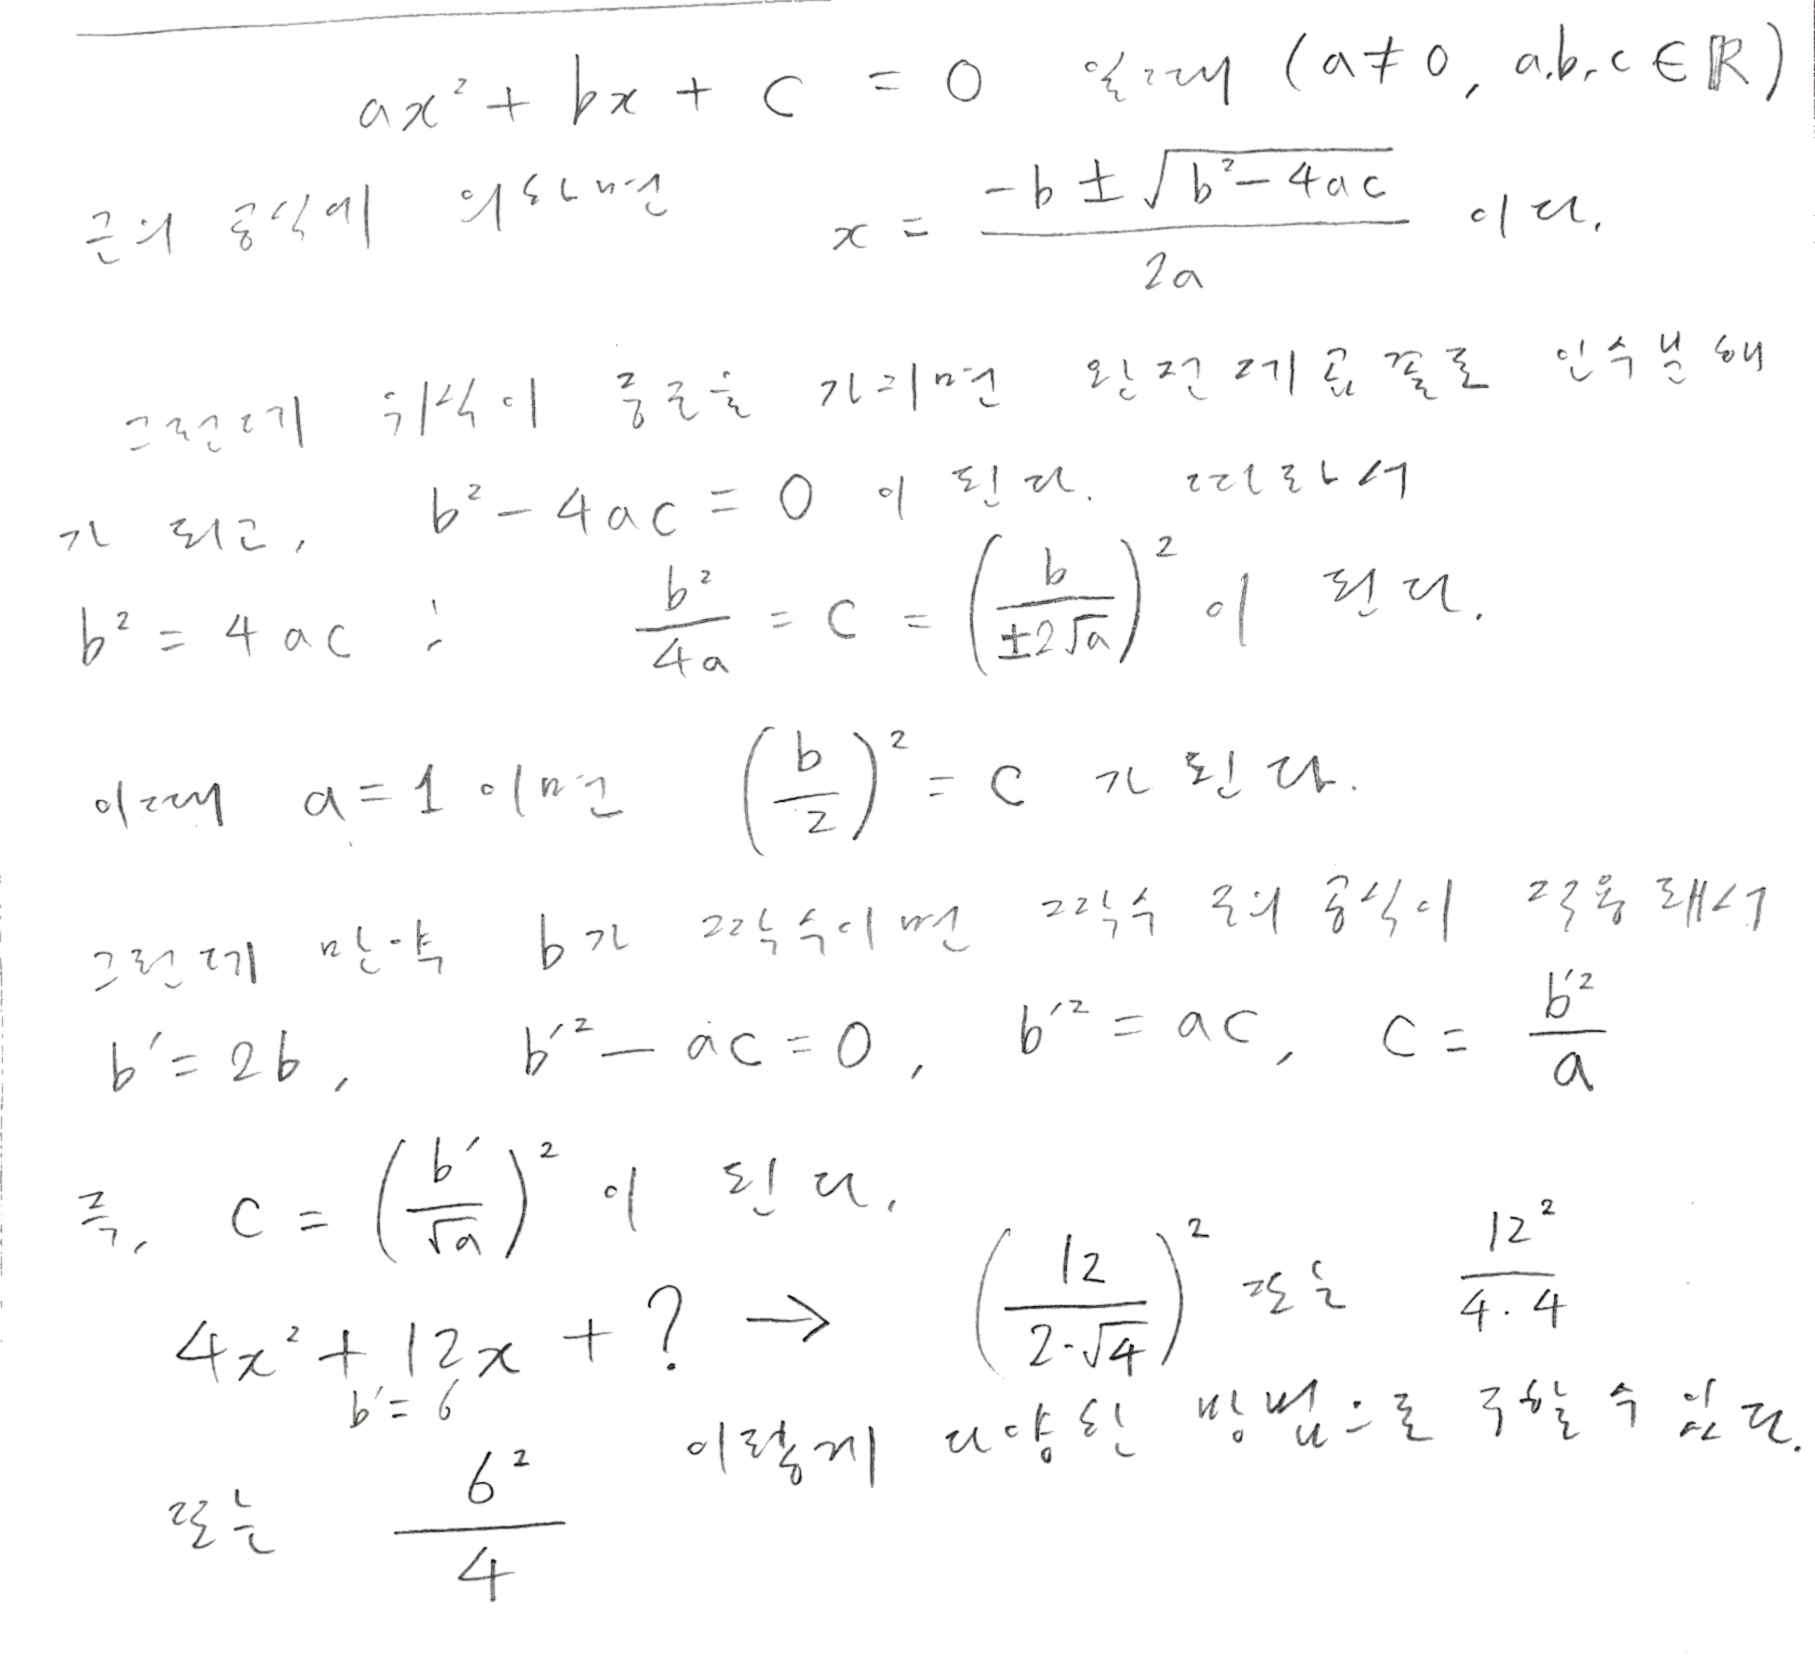 ax² + bx + c = 0 일때 (a≠0, a,b,c ∈ ℝ)
근의 공식에 의하면 x = (-b ± √(b²-4ac)) / 2a 이다.
그런데 위식이 중근을 가지면 완전제곱꼴로 인수분해
가 되고, b² - 4ac = 0 이 된다. 따라서
b² = 4ac ; b²/4a = c = (b/±2√a)² 이 된다.
이때 a = 1 이면 (b/2)² = c 가 된다.
그런데 만약 b가 짝수이면 짝수 근의 공식이 적용돼서
b′ = 2b, b′² - ac = 0, b′² = ac, c = b′²/a
즉, c = (b′/√a)² 이 된다.
4x² + 12x + ? → (12/2·√4)² 또는 12²/4·4
b′ = 6
또는 6²/4 이렇게 다양한 방법으로 구할 수 있다.